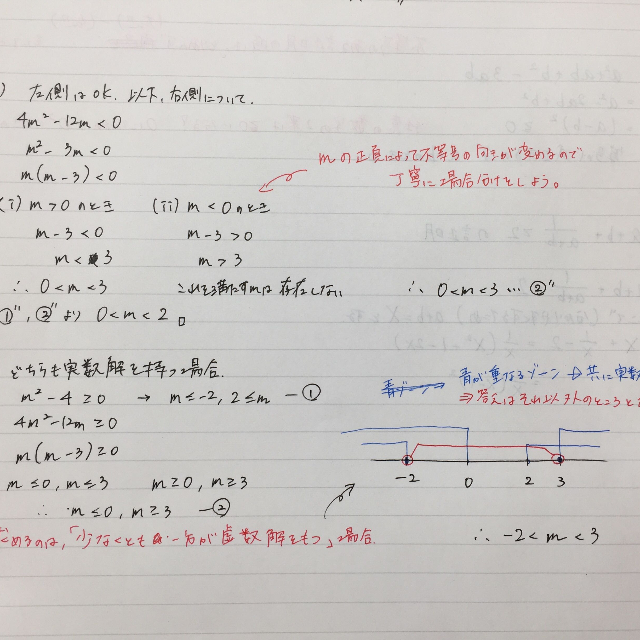 ) 左側はOK. 以下、右側について.
4m²-12m<0
m²-3m<0
m(m-3)<0
mの正負によって不等号の向きが変わるので
丁寧に場合分けをしよう。
(i) m>0 のとき (ii) m<0 のとき
m-3<0 m-3>0
m<3 m>3
∴ 0<m<3 これを満たすmは存在しない ∴ 0<m<3 … ②"
①", ②" より 0<m<2 。
どちらも実数解を持つ場合.
m²-4≧0 → m≦-2, 2≦m — ①
青が重なるゾーン → 共に実数
⇒答えはそれ以外のところと
4m²-12m≧0
m(m-3)≧0
m≦0, m≦3 m≧0, m≧3
-2 0 2 3
∴ m≦0, m≧3 — ②
めるのは、「少なくとも 一方が虚数解をもつ」場合.
∴ -2<m<3